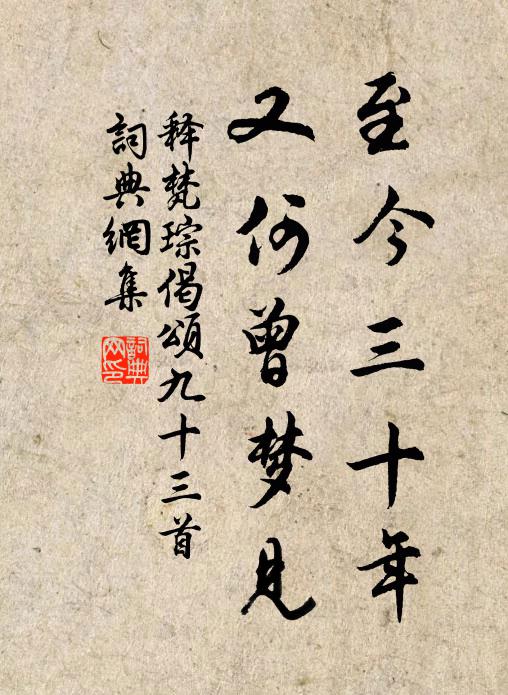 至今三十年
又何曾梦見
释梵琮偈頌九十三首
詞典網集
詞典
网印